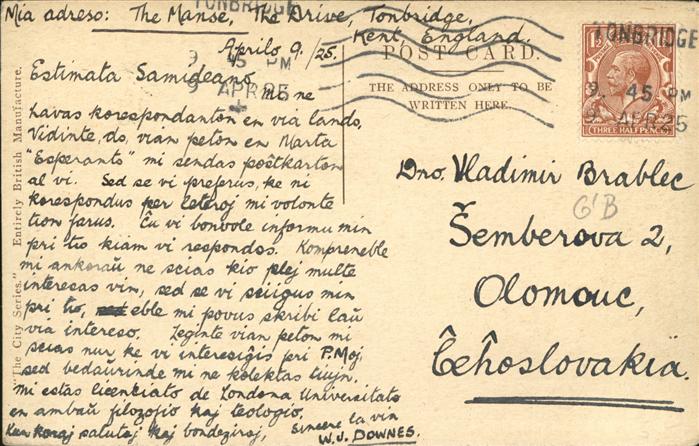 Mia adreso: The Manse, The Drive, Tonbridge,
Kent, England.
Aprilo 9./25.
Estimata Samideano,
mi ne
havas korespondanton en via lando,
Vidinte, do, vian peton en Marta
"Esperanto" mi sendas poŝtkarton
al vi. Sed se vi preferus, ke ni
korespondus per leteroj mi volonte
tion farus. Ĉu vi bonvole informu min
pri tio kiam vi respondos. Kompreneble
mi ankoraŭ ne scias kio plej multe
interesas vin, sed se vi sciigus min
pri tio, eble mi povus skribi laŭ
via intereso. Leginte vian peton mi
scias nur ke vi interesiĝis pri P.Moj
sed bedaŭrinde mi ne kolektas tiujn.
mi estas licenciato de Londona Universitato
en ambaŭ filozofio kaj teologio.
Kun koraj salutoj kaj bondeziroj,
Sincere la vin
W.J. DOWNES.
"The City Series." Entirely British Manufacture.
POST CARD.
THE ADDRESS ONLY TO BE
WRITTEN HERE.
TONBRIDGE
9 45 PM
9 APR 25
TONBRIDGE
9. 45 PM
9 APR 25
THREE HALFPENCE
Dno. Vladimir Brablec
G'B
Šemberova 2,
Olomouc,
Ĉeĥoslovakia.